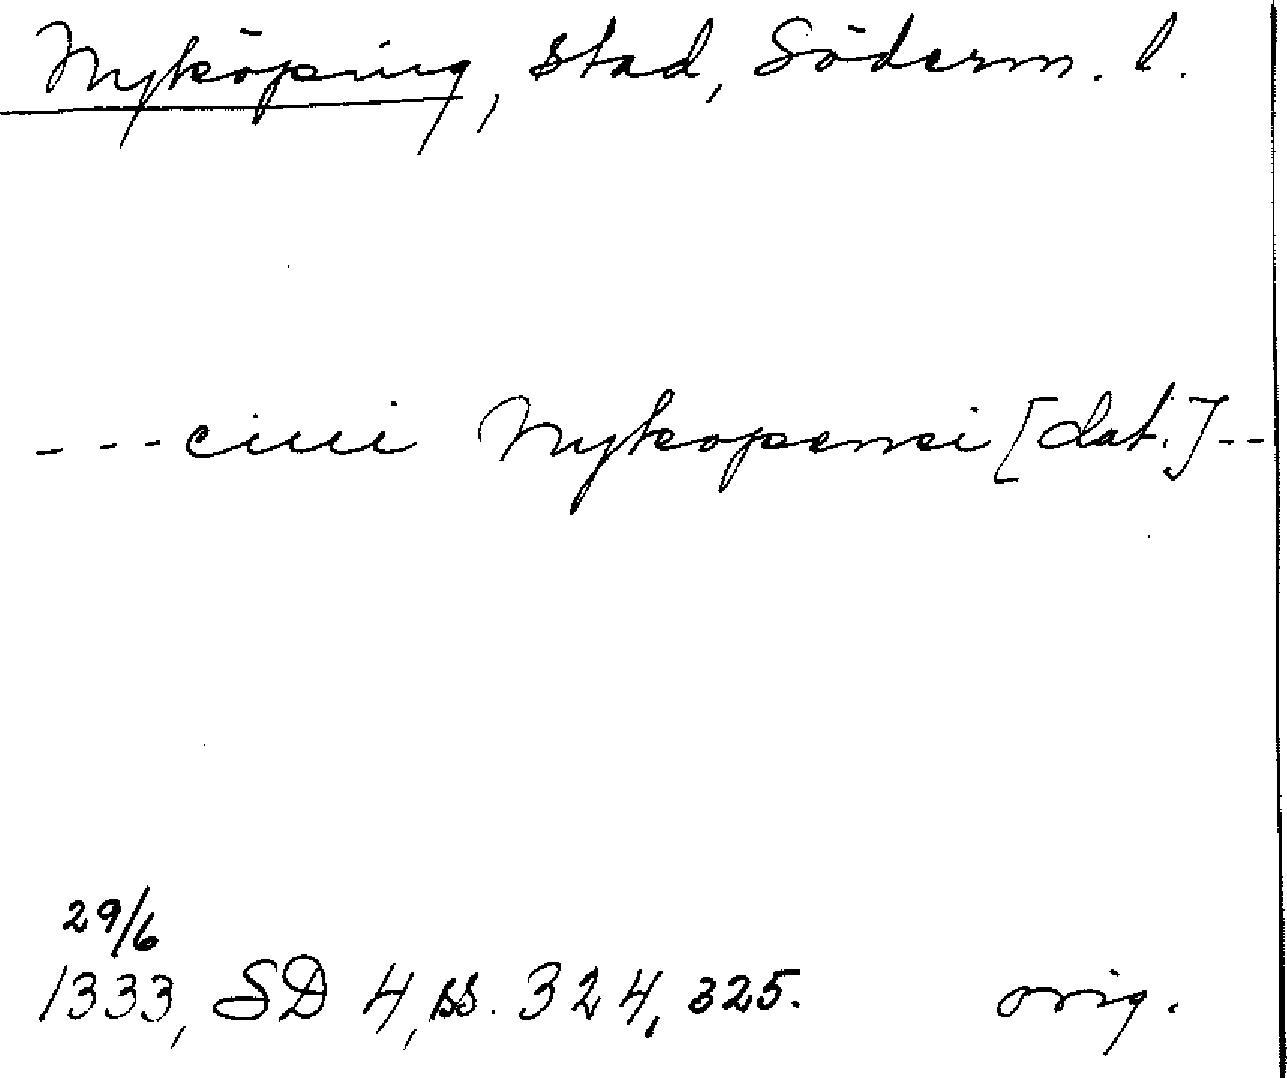 Nyköping, stad, Söderm. l.
- - - ciui Nykopensi [dat.] - -
29/6
1333, SD 4, ss. 324, 325. orig.